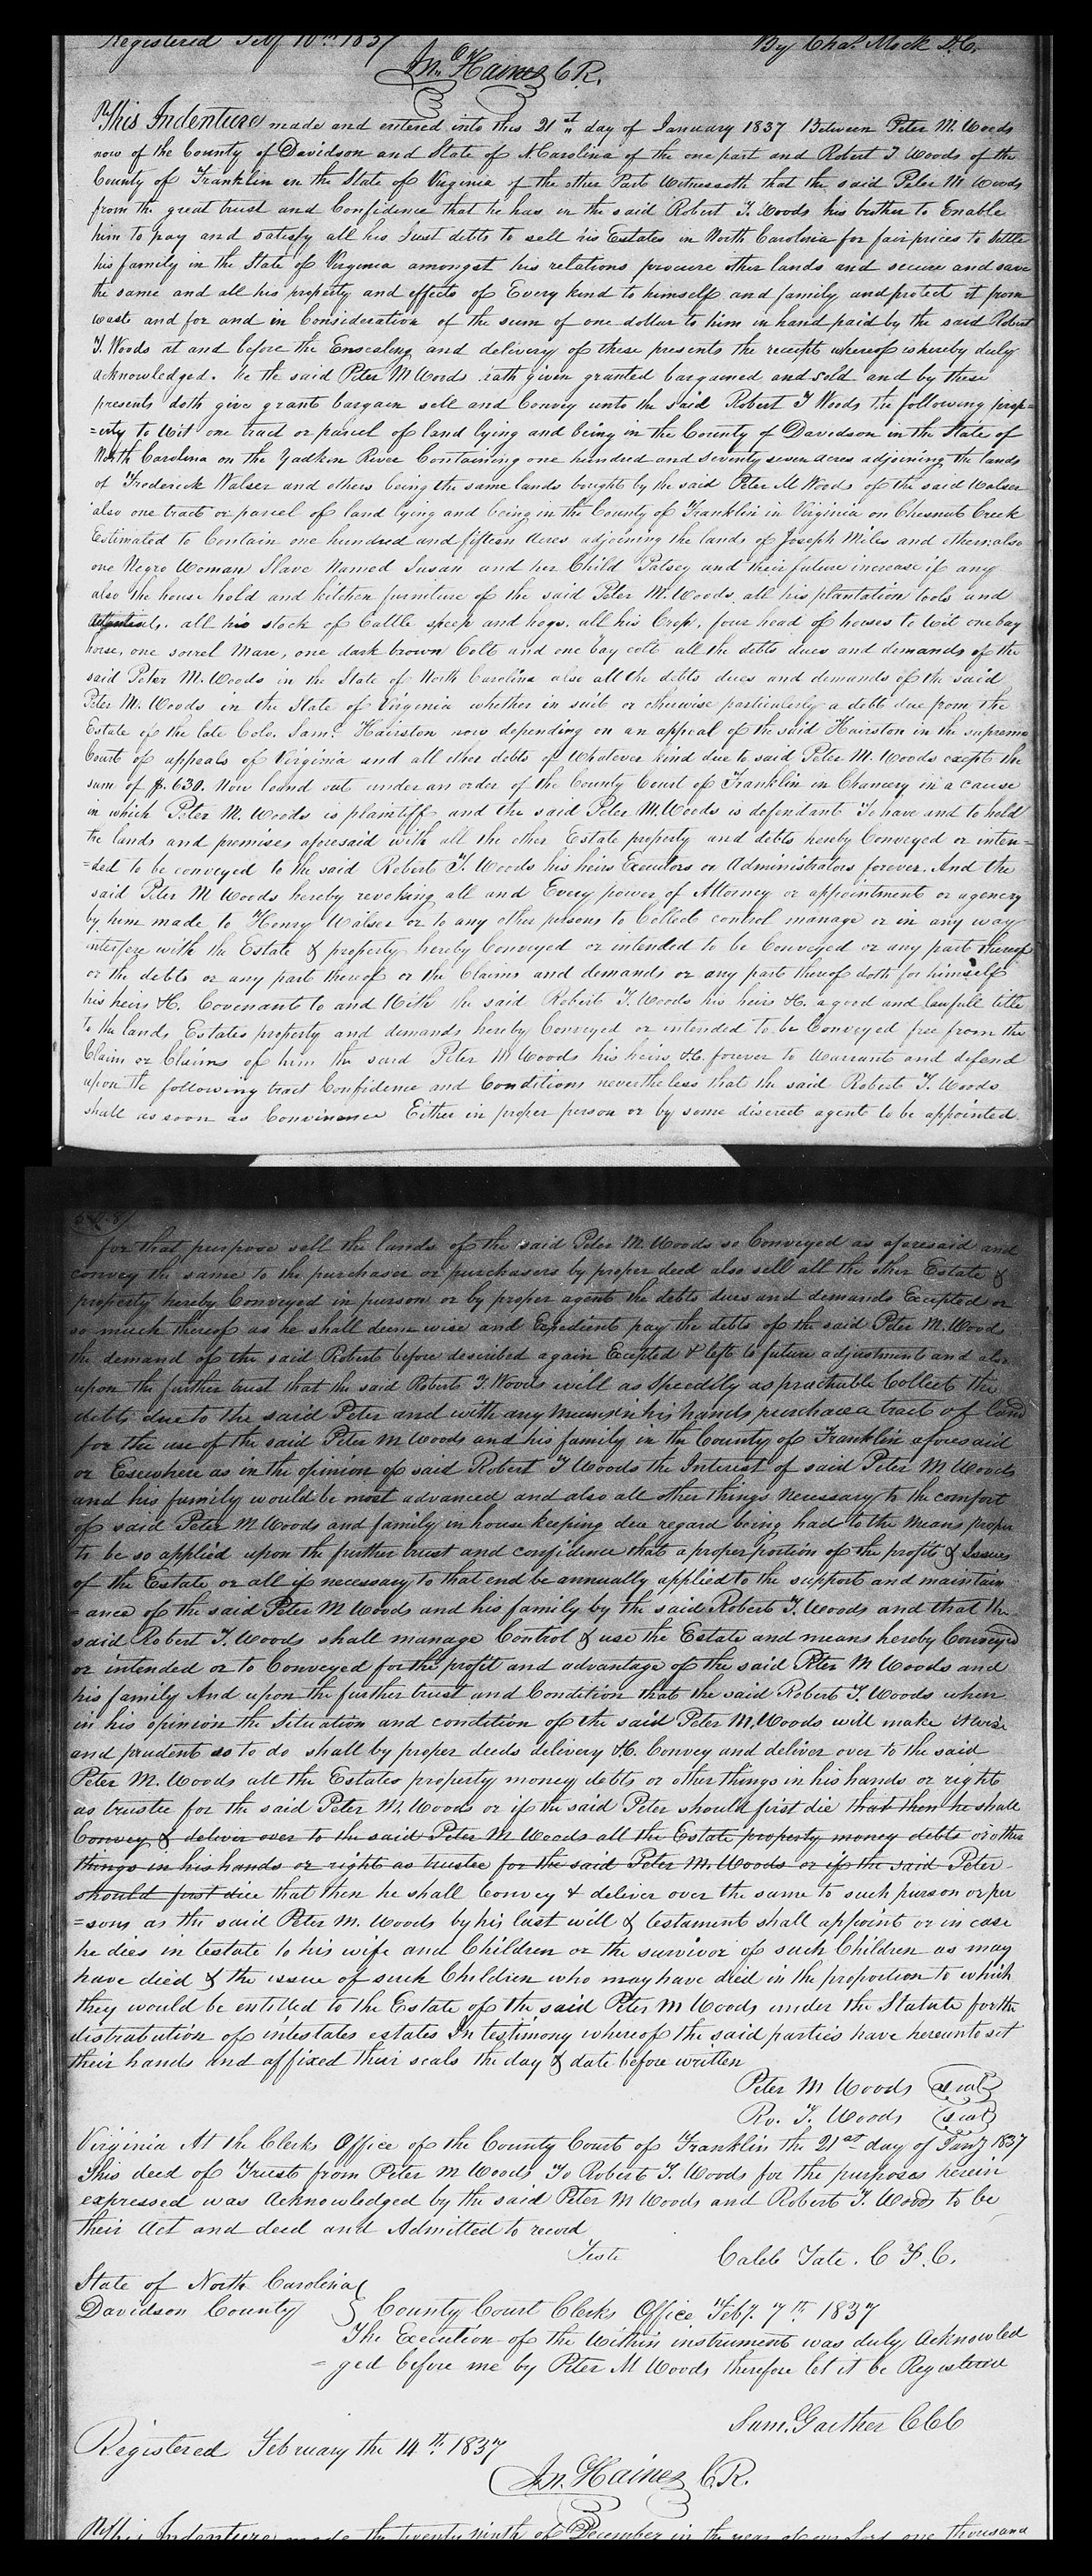 Registered Feby 10th 1837 By Chas. Mock D.C.
Jno Haines C R.
This Indenture made and entered into this 21st day of January 1837 Between Peter M. Woods
now of the County of Davidson and State of N. Carolina of the one part and Robert T. Woods of the
County of Franklin in the State of Virginia of the other Part Witnesseth that the said Peter M Woods
from the great trust and Confidence that he has in the said Robert T. Woods his brother to Enable
him to pay and satisfy all his Just debts to sell his Estates in North Carolina for fair prices to settle
his family in the State of Virginia amongst his relations procure other lands and secure and save
the same and all his property and effects of Every kind to himself and family and protect it from
waste and for and in Consideration of the sum of one dollar to him in hand paid by the said Robert
T. Woods at and before the Ensealing and delivery of these presents the receipt whereof is hereby duly
acknowledged. he the said Peter M Woods hath given granted bargained and sold and by these
presents doth give grant bargain sell and Convey unto the said Robert T Woods the following prop=
=erty to Wit one tract or parcel of land lying and being in the County of Davidson in the State of
North Carolina on the Yadkin River Containing one hundred and seventy seven acres adjoining the lands
of Frederick Walser and others being the same lands bought by the said Peter M Woods of the said Walser
also one tract or parcel of land lying and being in the County of Franklin in Virginia on Chesnut Creek
Estimated to Contain one hundred and fifteen Acres adjoining the lands of Joseph Miles and others also
one Negro Woman Slave Named Susan and her Child Patsey and their future increase if any
also the house hold and kitchen furniture of the said Peter M. Woods. all his plantation tools and
all his stock of Cattle speep and hogs. all his Crop. four head of horses to wit one bay
horse, one sorrel Mare, one dark brown Colt and one bay colt all the debts dues and demands of the
said Peter M. Woods in the State of North Carolina also all the debts dues and demands of the said
Peter M. Woods in the State of Virginia whether in suit or otherwise particularly a debt due from the
Estate of the late Colo. Saml. Hairston now depending on an appeal of the said Hairston in the supreme
Court of appeals of Virginia and all other debts of Whatever kind due to said Peter M. Woods except the
sum of $.630. Now loand out under an order of the County Court of Franklin in Chancery in a cause
in which Peter M. Woods is plaintiff and the said Peter M. Woods is defendant To have and to hold
the lands and premises aforesaid with all the other Estate property and debts hereby Conveyed or inten=
=ded to be conveyed to the said Robert T. Woods his heirs Executors or Administrators forever. And the
said Peter M Woods hereby revoking all and Every power of Attorney or appointment or agency
by him made to Henry Walser or to any other persons to Collect control manage or in any way
interfere with the Estate & property hereby Conveyed or intended to be Conveyed or any part thereof
or the debts or any part thereof or the Claims and demands or any part thereof doth for himself
his heirs &c. Covenant to and With the said Robert T. Woods his heirs &c. a good and lawfull title
to the lands Estates property and demands hereby Conveyed or intended to be Conveyed free from the
Claim or Claims of him the said Peter M Woods his heirs &c. forever to Warrant and defend
upon the following trust Confidence and Conditions nevertheless that the said Robert T. Woods
shall as soon as Convinence Either in proper person or by some discreet agent to be appointed
for that purpose sell the lands of the said Peter M Woods so Conveyed as aforesaid and
convey the same to the purchaser or purchasers by proper deed also sell all the other Estate &
property hereby Conveyed in person or by proper agent the debts dues and demands Excepted or
so much thereof as he shall deem wise and Expedient pay the debts of the said Peter M. Woods
the demand of the said Robert before described again Excepted & left to future adjustment and also
upon the further trust that the said Robert T. Woods will as Speedily as practicable Collect the
debts due to the said Peter and with any Means in his hands purchase a tract of land
for the use of the said Peter M Woods and his family in the County of Franklin aforesaid
or Esewhere as in the opinion of said Robert T Woods the Interest of said Peter M Woods
and his family would be most advanced and also all other things necessary to the comfort
of said Peter M Woods and family in house keeping due regard being had to the Means proper
to be so applied upon the further trust and confidence that a proper portion of the profits & Issues
of the Estate or all if necessary to that end be annually applied to the support and maintain
=ance of the said Peter M Woods and his family by the said Robert T. Woods and that the
said Robert T. Woods shall manage Control & use the Estate and means hereby Conveyed
or intended or to Conveyed for the profit and advantage of the said Peter M Woods and
his family And upon the further trust and Condition that the said Robert T. Woods when
in his opinion the Situation and condition of the said Peter M. Woods will make it wise
and prudent so to do shall by proper deeds delivery &c. Convey and deliver over to the said
Peter M. Woods all the Estates property money debts or other things in his hands or right
as trustee for the said Peter M. Woods or if the said Peter should first die that then he shall
Convey & deliver over to the said Peter M Woods all the Estate property money debts or other
things in his hands or right as trustee for the said Peter M. Woods or if the said Peter
should first diee that then he shall Convey & deliver over the same to such person or per
=sons as the said Peter M. Woods by his last will & testament shall appoint or in case
he dies in testate to his wife and Children or the survivor of such Children as may
have died & the issue of such Children who may have died in the proportion to which
they would be entitled to the Estate of the said Peter M Woods under the Statute for the
distrabution of intestates estates In testimony whereof the said parties have hereunto set
their hands and affixed their seals the day & date before written
Peter M Woods (seal)
Ro. T. Woods (seal)
Virginia At the Clerks Office of the County Court of Franklin the 21st day of Jany 1837
This deed of Trust from Peter M Woods To Robert T. Woods for the purposes herein
expressed was Acknowledged by the said Peter M Woods and Robert T. Woods to be
their Act and deed and Admitted to record
Teste Caleb Tate. C F. C.
State of North Carolina
Davidson County } County Court Clerks Office Feby. 7th 1837
The Execution of the Within instrument was duly Acknowled
=ged before me by Peter M Woods therefore let it be Registered
Sam. Gaither CCC
Registered February the 14th 1837
Jn. Haines C.R.
This Indenture made the twenty ninth of December in the year of our Lord one thousand